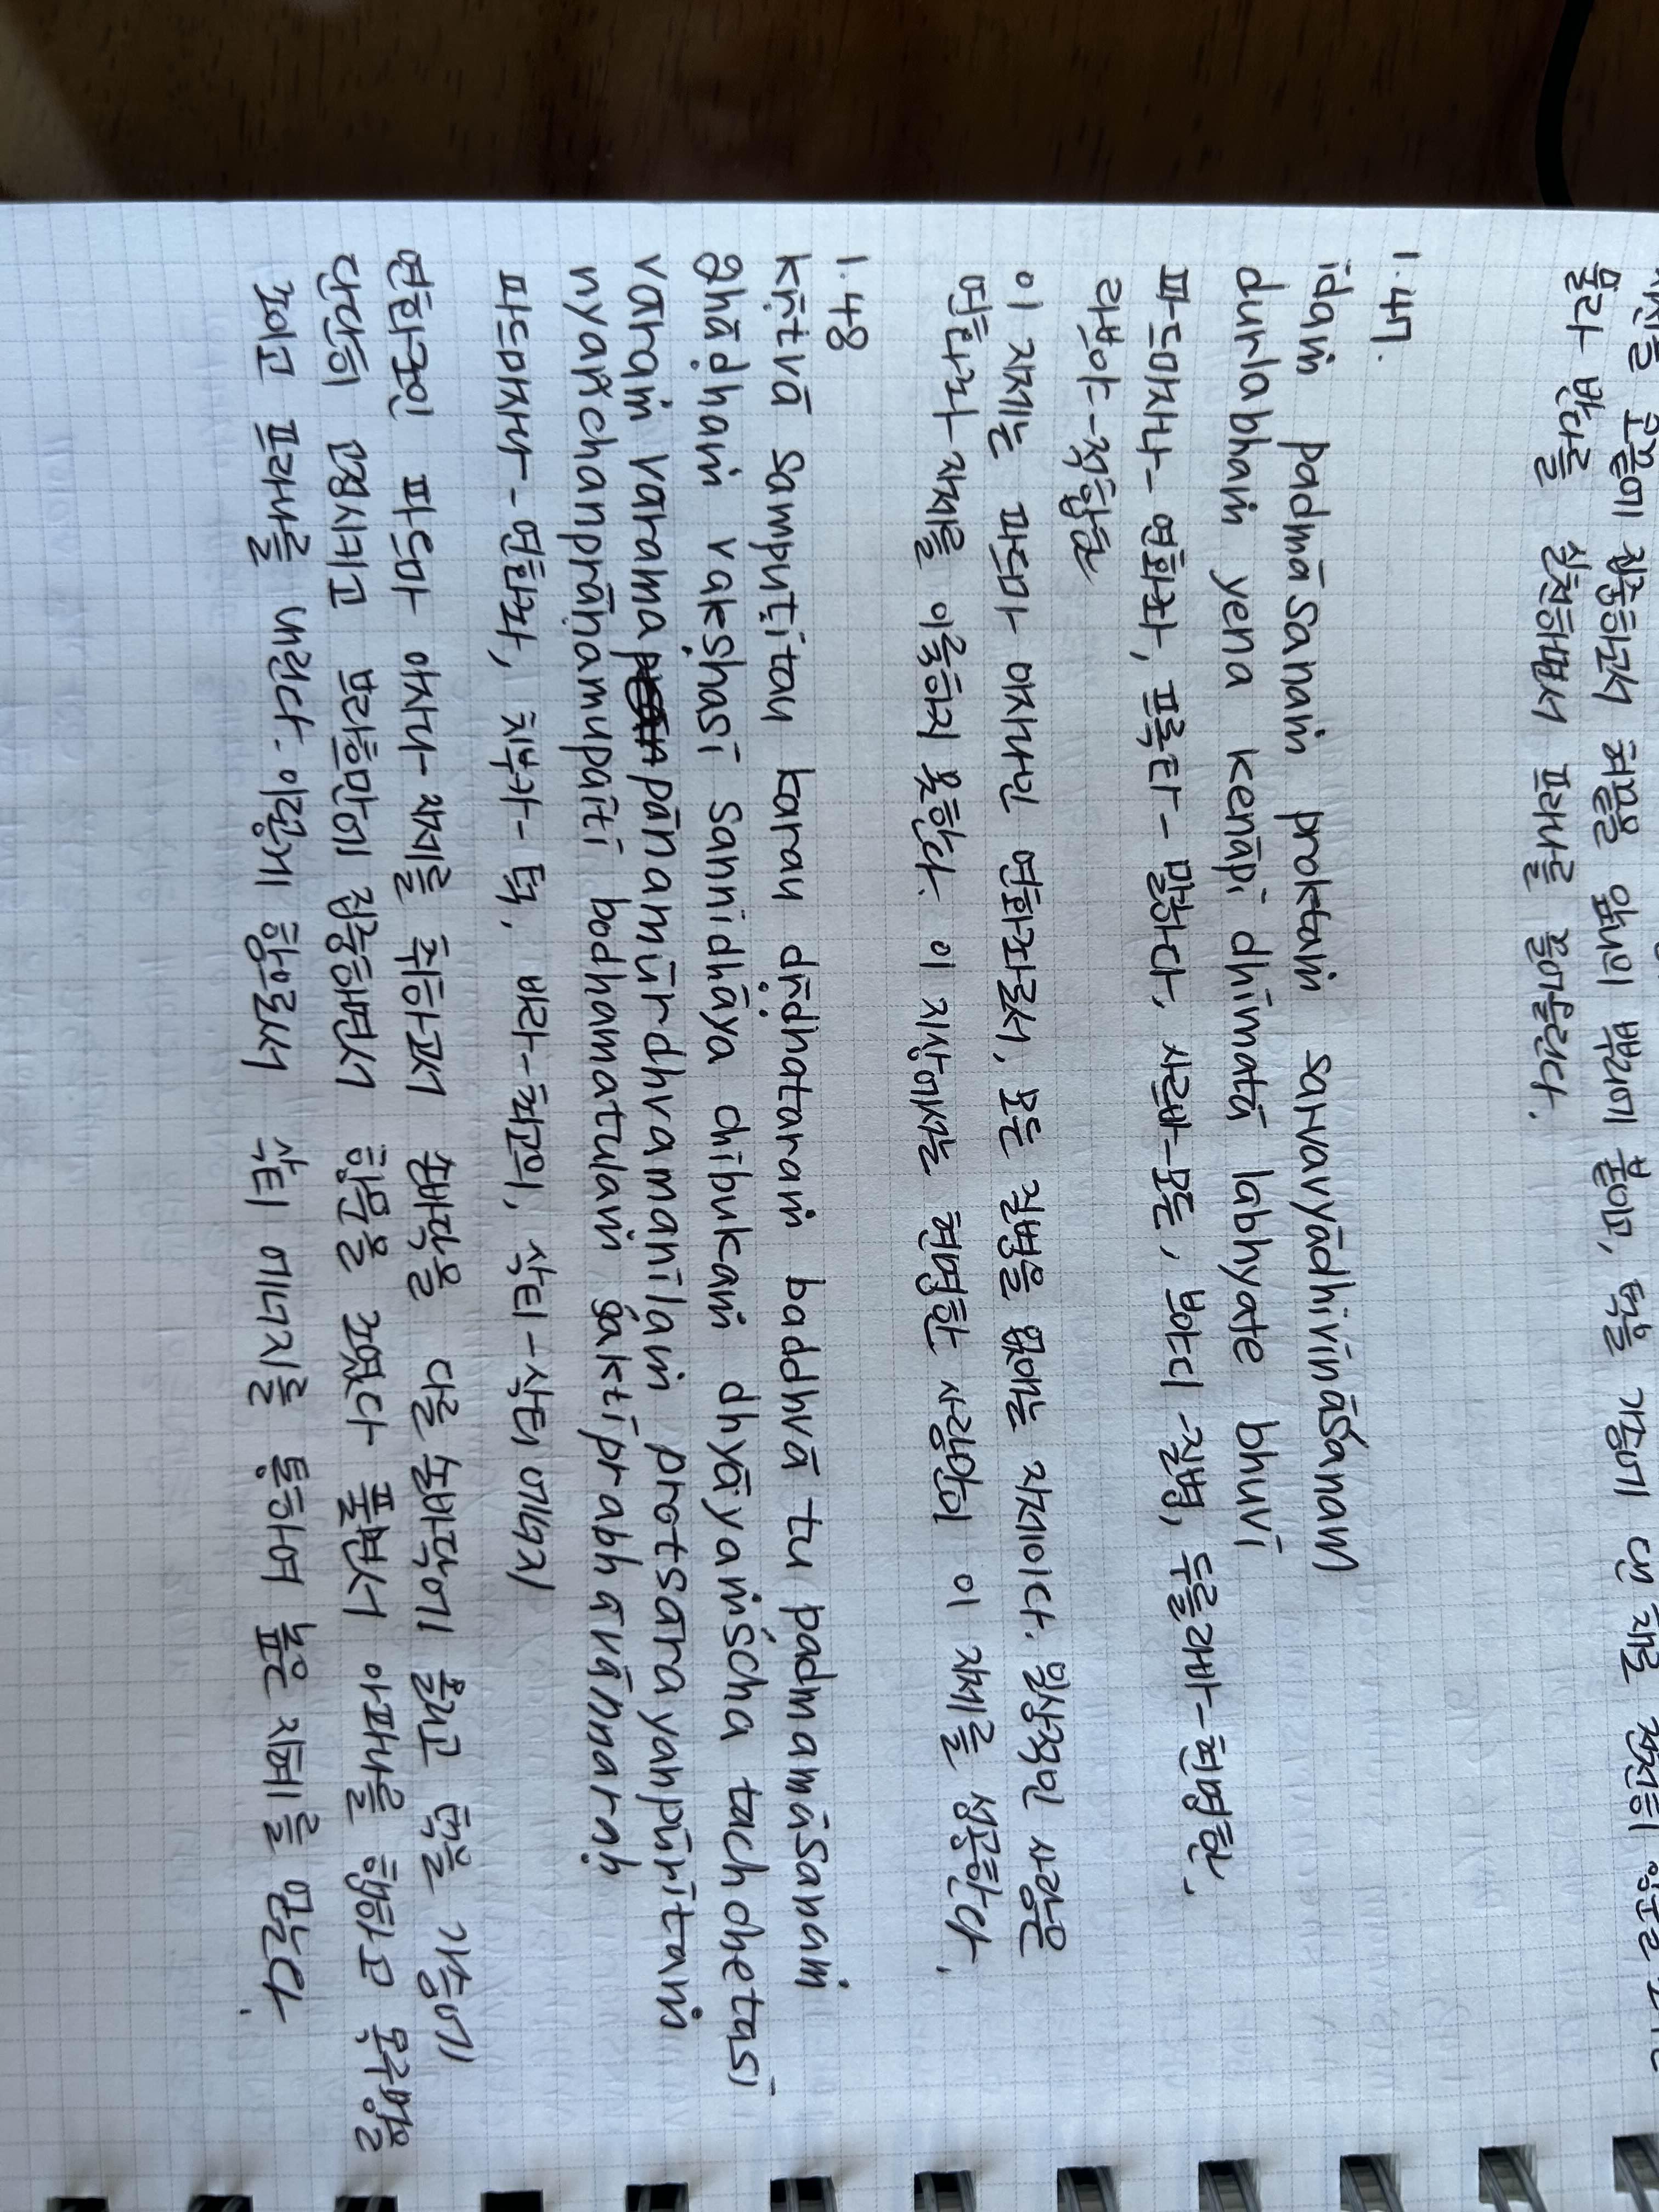 물라 반다를 실천하면서 프라나를 끌어올린다.
1.47.
idaṁ padmāsanaṁ proktaṁ sarvavyādhivināśanam
durlabhaṁ yena kenāpi dhīmatā labhyate bhuvi
파드마사나 - 연화좌, 프록타 - 말하다, 사르바 - 모든, 뱌디 - 질병, 두를라바 - 현명한,
라뱌야 - 적합한
이 자세는 파드마 아사나인 연화좌로서, 모든 질병을 없애는 자세이다. 일상적인 사람은
연화좌 자세를 이룩하지 못한다. 이 지상에서는 현명한 사람만이 이 자세를 성공한다.
1.48
kṛtvā sampuṭitau karau dṛḍhataraṁ baddhvā tu padmamāsanaṁ
ghāḍhaṁ vakṣhasi sannidhāya chibukaṁ dhyāyaṁścha tachchetasi
vāraṁ vārama pānamūrdhvamanilaṁ protsārayanpūritaṁ
nyañchanprāṇamupaiti bodhamatulaṁ śaktiprabhāvānnaraḥ
파드마사나 - 연화좌, 치부카 - 턱, 바라 - 최고의, 삭티 - 삭티 에너지
연화좌인 파드마 아사나 자세를 취하고서 손바닥을 다른 손바닥에 올리고 턱을 가슴에
단단히 고정시키고 브라흐만에 집중하면서 항문을 조였다 풀면서 아파나를 행하고 목구멍을
조이고 프라나를 내린다. 이렇게 함으로써 삭티 에너지를 통하여 높은 지혜를 얻는다.